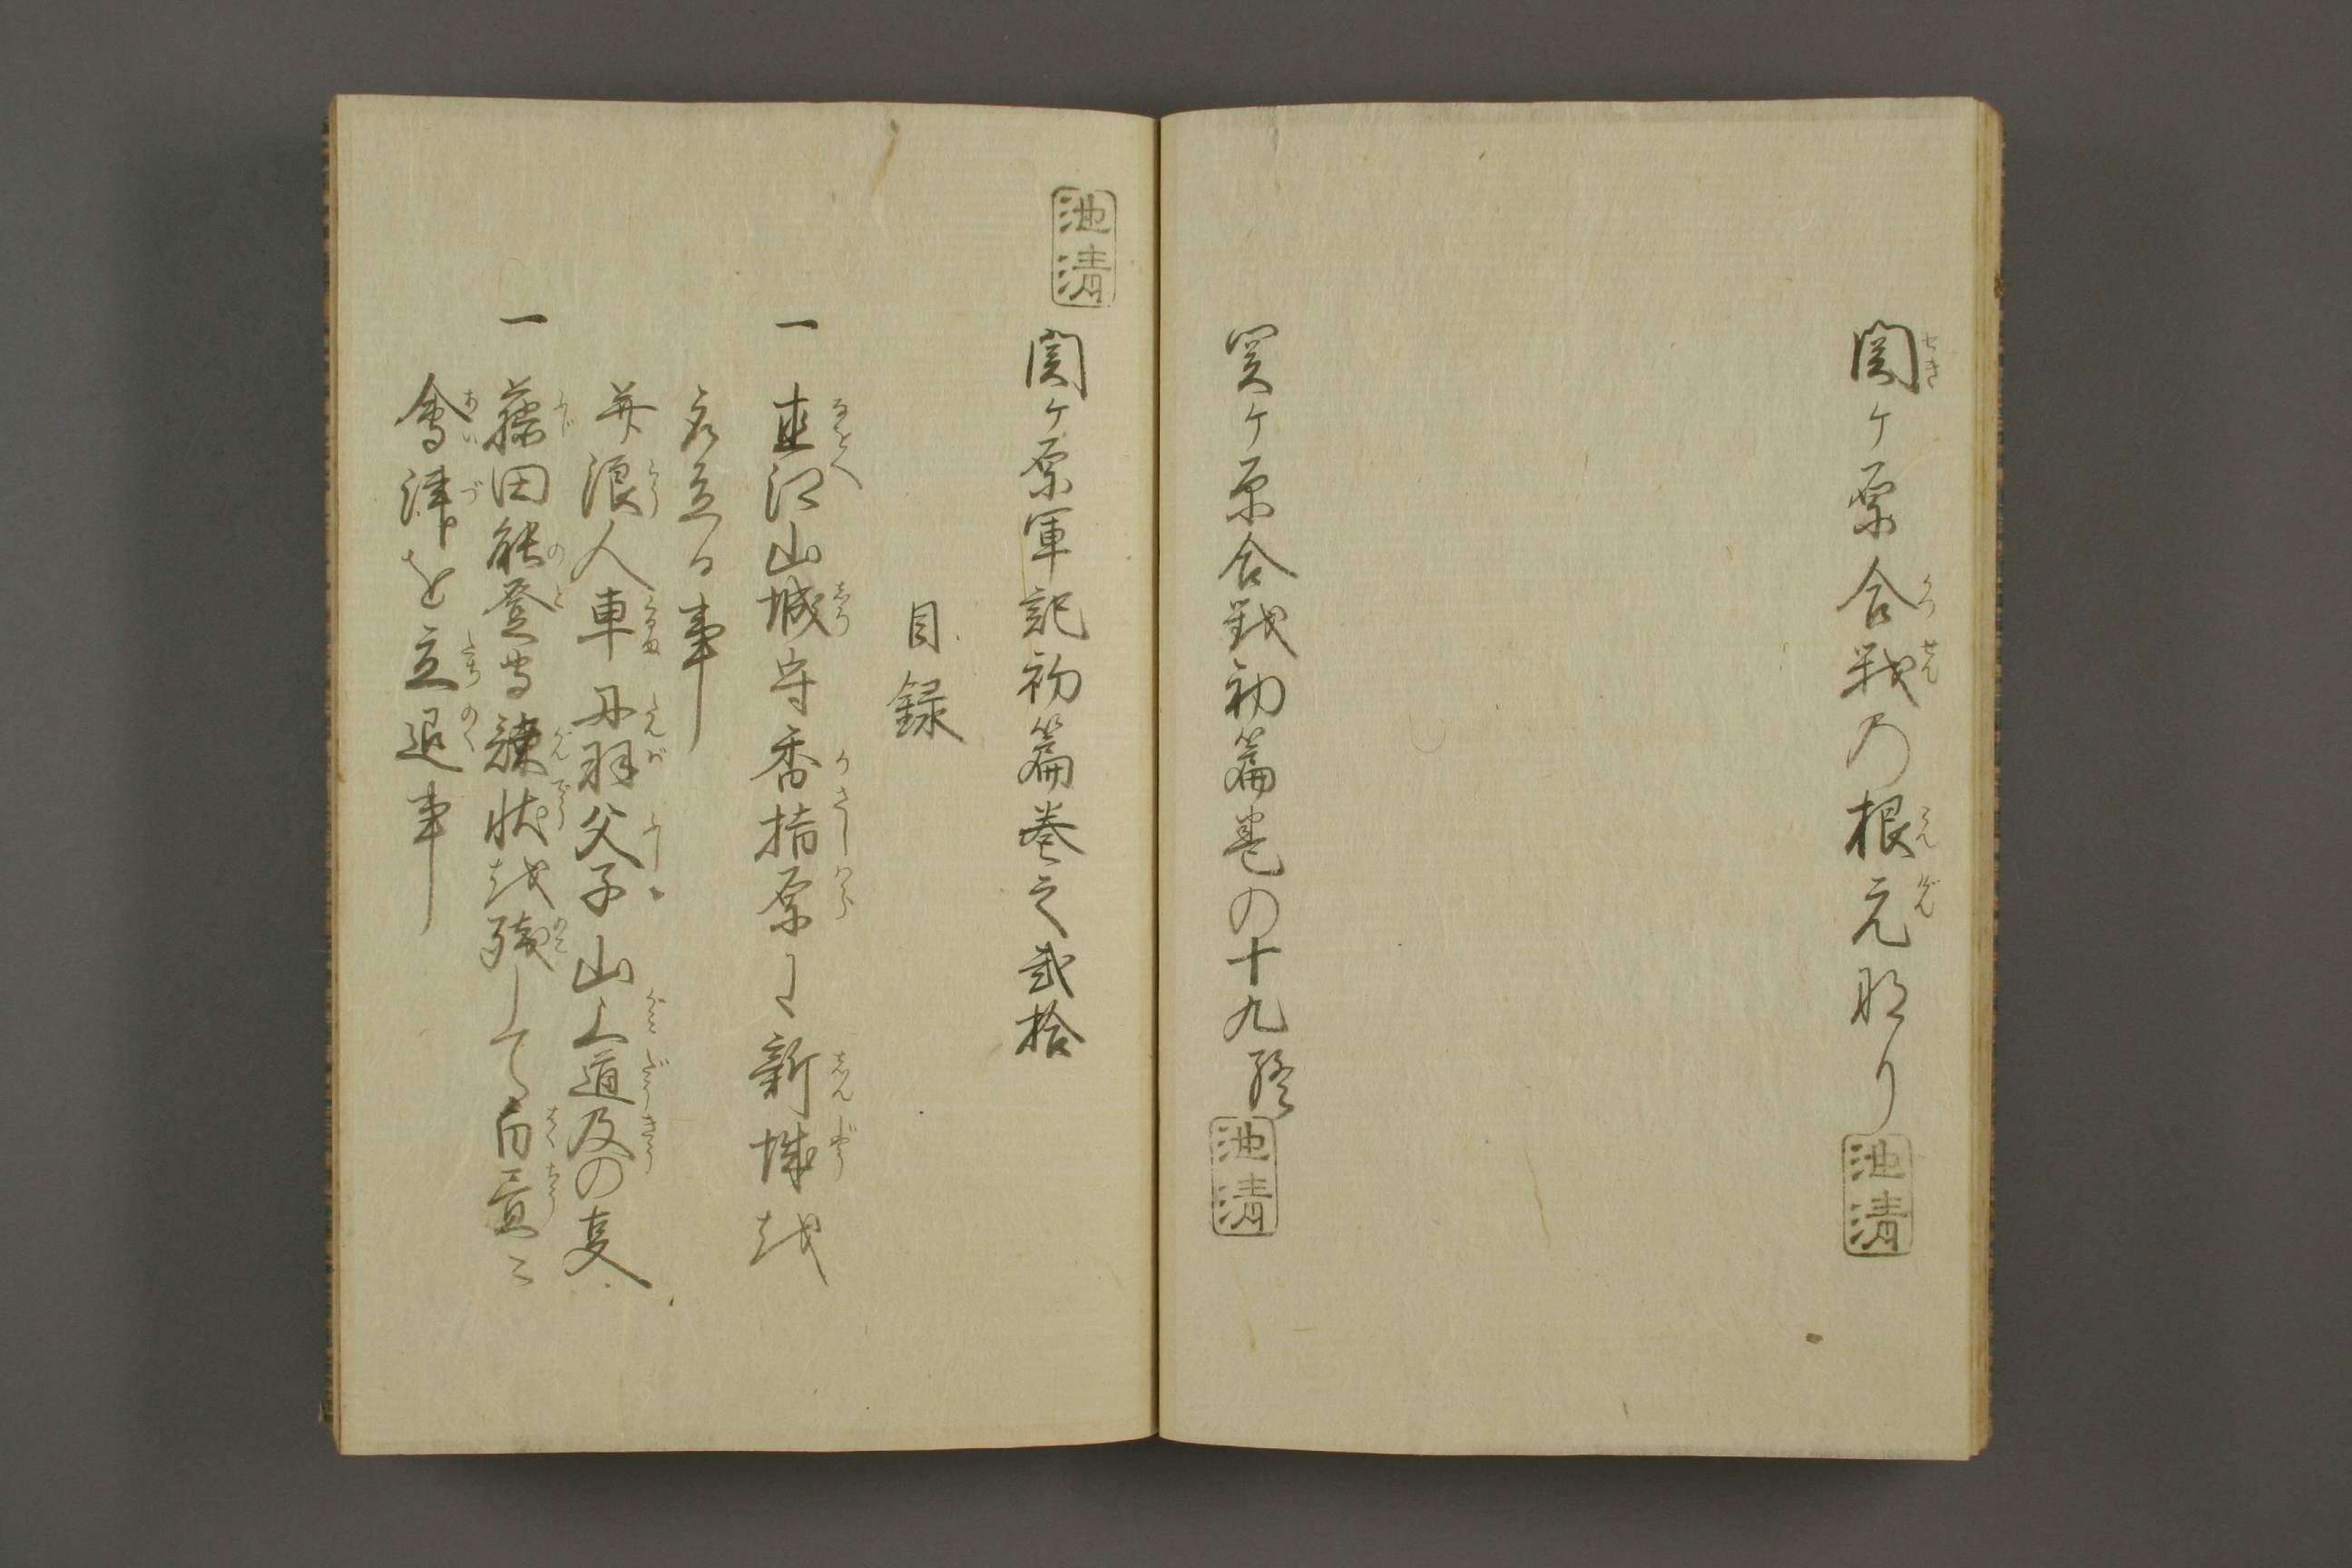 関ヶ原合戦乃根元なり
池清
関ヶ原合戦初篇巻の十九終
池清
池清
関ヶ原軍記初篇巻之弐拾
目録
一 直江山城守香指原に新城を
取立る事
并浪人車丹羽父子山上道及の事
一 藤田能登守諫状を残して白昼に
會津を立退事